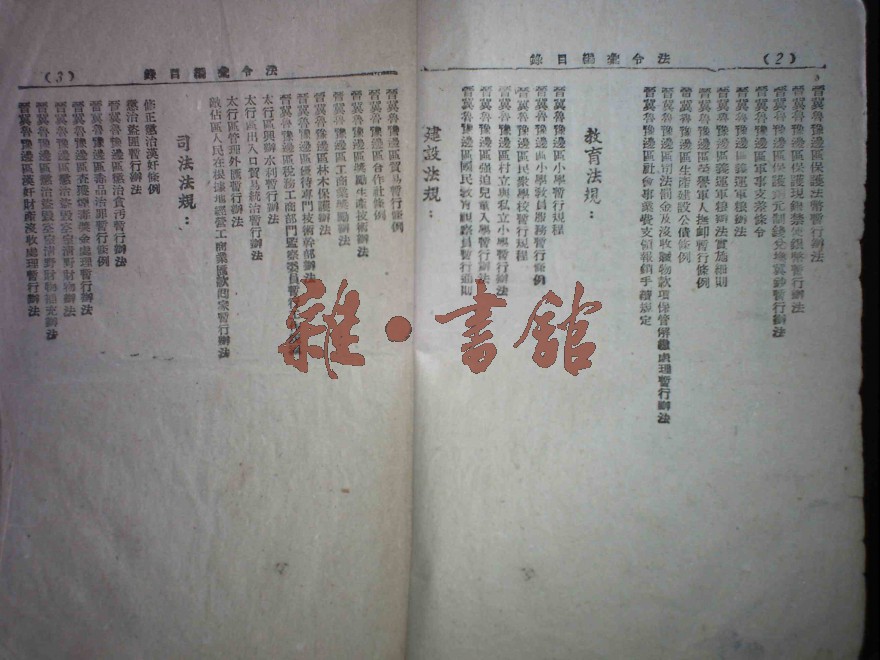 (2)
法令彙編目錄
晉冀魯豫邊區保護法幣暫行辦法
晉冀魯豫邊區保護現銀禁使銀幣暫行辦法
晉冀魯豫邊區軍事支差條令
晉冀魯豫邊區義運軍糧辦法
晉冀魯豫邊區義運軍糧辦法實施細則
晉冀魯豫邊區榮譽軍人撫卹暫行條例
晉冀魯豫邊區生產建設公債條例
晉冀魯豫邊區司法罰金及沒收贓物款項保管解繳處理暫行辦法
晉冀魯豫邊區社會事業費支領報銷手續規定
教育法規：
晉冀魯豫邊區小學暫行規程
晉冀魯豫邊區小學教員服務暫行條例
晉冀魯豫邊區民衆學校暫行規程
晉冀魯豫邊區村立與私立小學暫行辦法
晉冀魯豫邊區強迫兒童入學暫行辦法
晉冀魯豫邊區國民教育視察員暫行通則
建設法規：
(3)
法令彙編目錄
晉冀魯豫邊區貿易暫行條例
晉冀魯豫邊區合作社條例
晉冀魯豫邊區獎勵生產技術辦法
晉冀魯豫邊區工商業獎勵辦法
晉冀魯豫邊區林木保護辦法
晉冀魯豫邊區優待專門技術幹部辦法
晉冀魯豫邊區稅務工商部門監察委員暫行
太行區興辦水利暫行辦法
太行區出入口貿易統治暫行辦法
太行區管理外匯暫行辦法
敵佔區人民在根據地經營工商業匯款回家暫行辦法
司法法規：
修正懲治漢奸條例
懲治盜匪暫行辦法
晉冀魯豫邊區懲治貪污暫行辦法
晉冀魯豫邊區毒品治罪暫行條例
晉冀魯豫邊區查獲煙毒獎金處理暫行辦法
晉冀魯豫邊區懲治盜毀空室清野財物辦法
晉冀魯豫邊區懲治盜毀空室清野財物補充辦法
晉冀魯豫邊區漢奸財產沒收處理暫行辦法
雜·書館